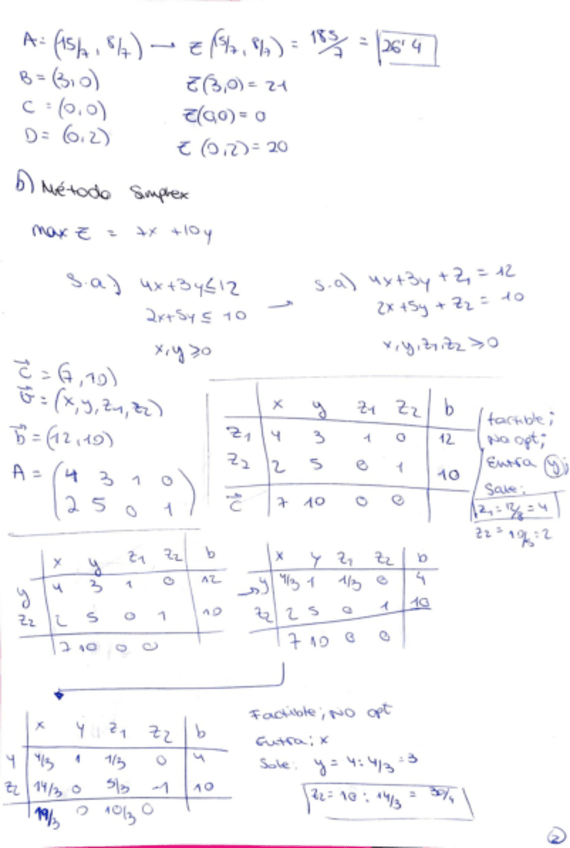 A = (15/7, 8/7) → Z(5/7, 8/7) = 185/7 = 26'4
B = (3,0) Z(3,0) = 21
C = (0,0) Z(0,0) = 0
D = (0,2) Z(0,2) = 20
b) Método Simplex
max Z = 7x + 10y
s.a) 4x+3y ≤ 12 → s.a) 4x+3y + Z1 = 12
2x+5y ≤ 10 2x+5y + Z2 = 10
x,y ≥ 0 x,y,Z1,Z2 ≥ 0
c = (7, 10)
v = (x,y,Z1,Z2)
b = (12,10)
A = (4 3 1 0
2 5 0 1)
x y Z1 Z2 b
Z1 4 3 1 0 12
Z2 2 5 0 1 10
c 7 10 0 0
factible;
No opt;
Entra y;
Sale:
Z1 = 12/3 = 4
Z2 = 10/5 = 2
x y Z1 Z2 b
y 4 3 1 0 12
Z2 2 5 0 1 10
7 10 0 0
x y Z1 Z2 b
→ y 4/3 1 1/3 0 4
Z2 2 5 0 1 10
7 10 0 0
x y Z1 Z2 b
y 4/3 1 1/3 0 4
Z2 14/3 0 5/3 -1 10
19/3 0 10/3 0
Factible; NO opt
Entra: x
Sale: y = 4 : 4/3 = 3
Z2 = 10 : 14/3 =
2